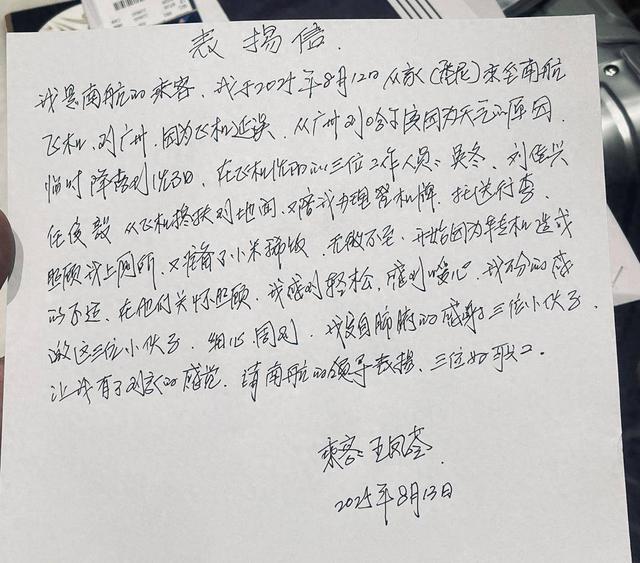 表扬信.
我是南航的乘客，我于2025年8月12日从家（悉尼）乘坐南航
飞机，到广州，因为飞机延误，从广州到哈尔滨因为天气的原因，
临时降落到沈阳，在飞机沈阳的三位工作人员：吴冬、刘佳兴
任俊毅 从飞机搀扶到地面，又陪我办理登机牌，托运行李，
照顾我上厕所，又准备了小米稀饭，无微不至，开始因为转机造成
的不适，在他们关怀照顾，我感到轻松，感到暖心，我万分的感
激这三位小伙子，细心周到，我发自肺腑的感谢三位小伙子，
让我有了到家的感觉，请南航的领导表扬，三位好职工.
乘客：王凤
2025年8月13日